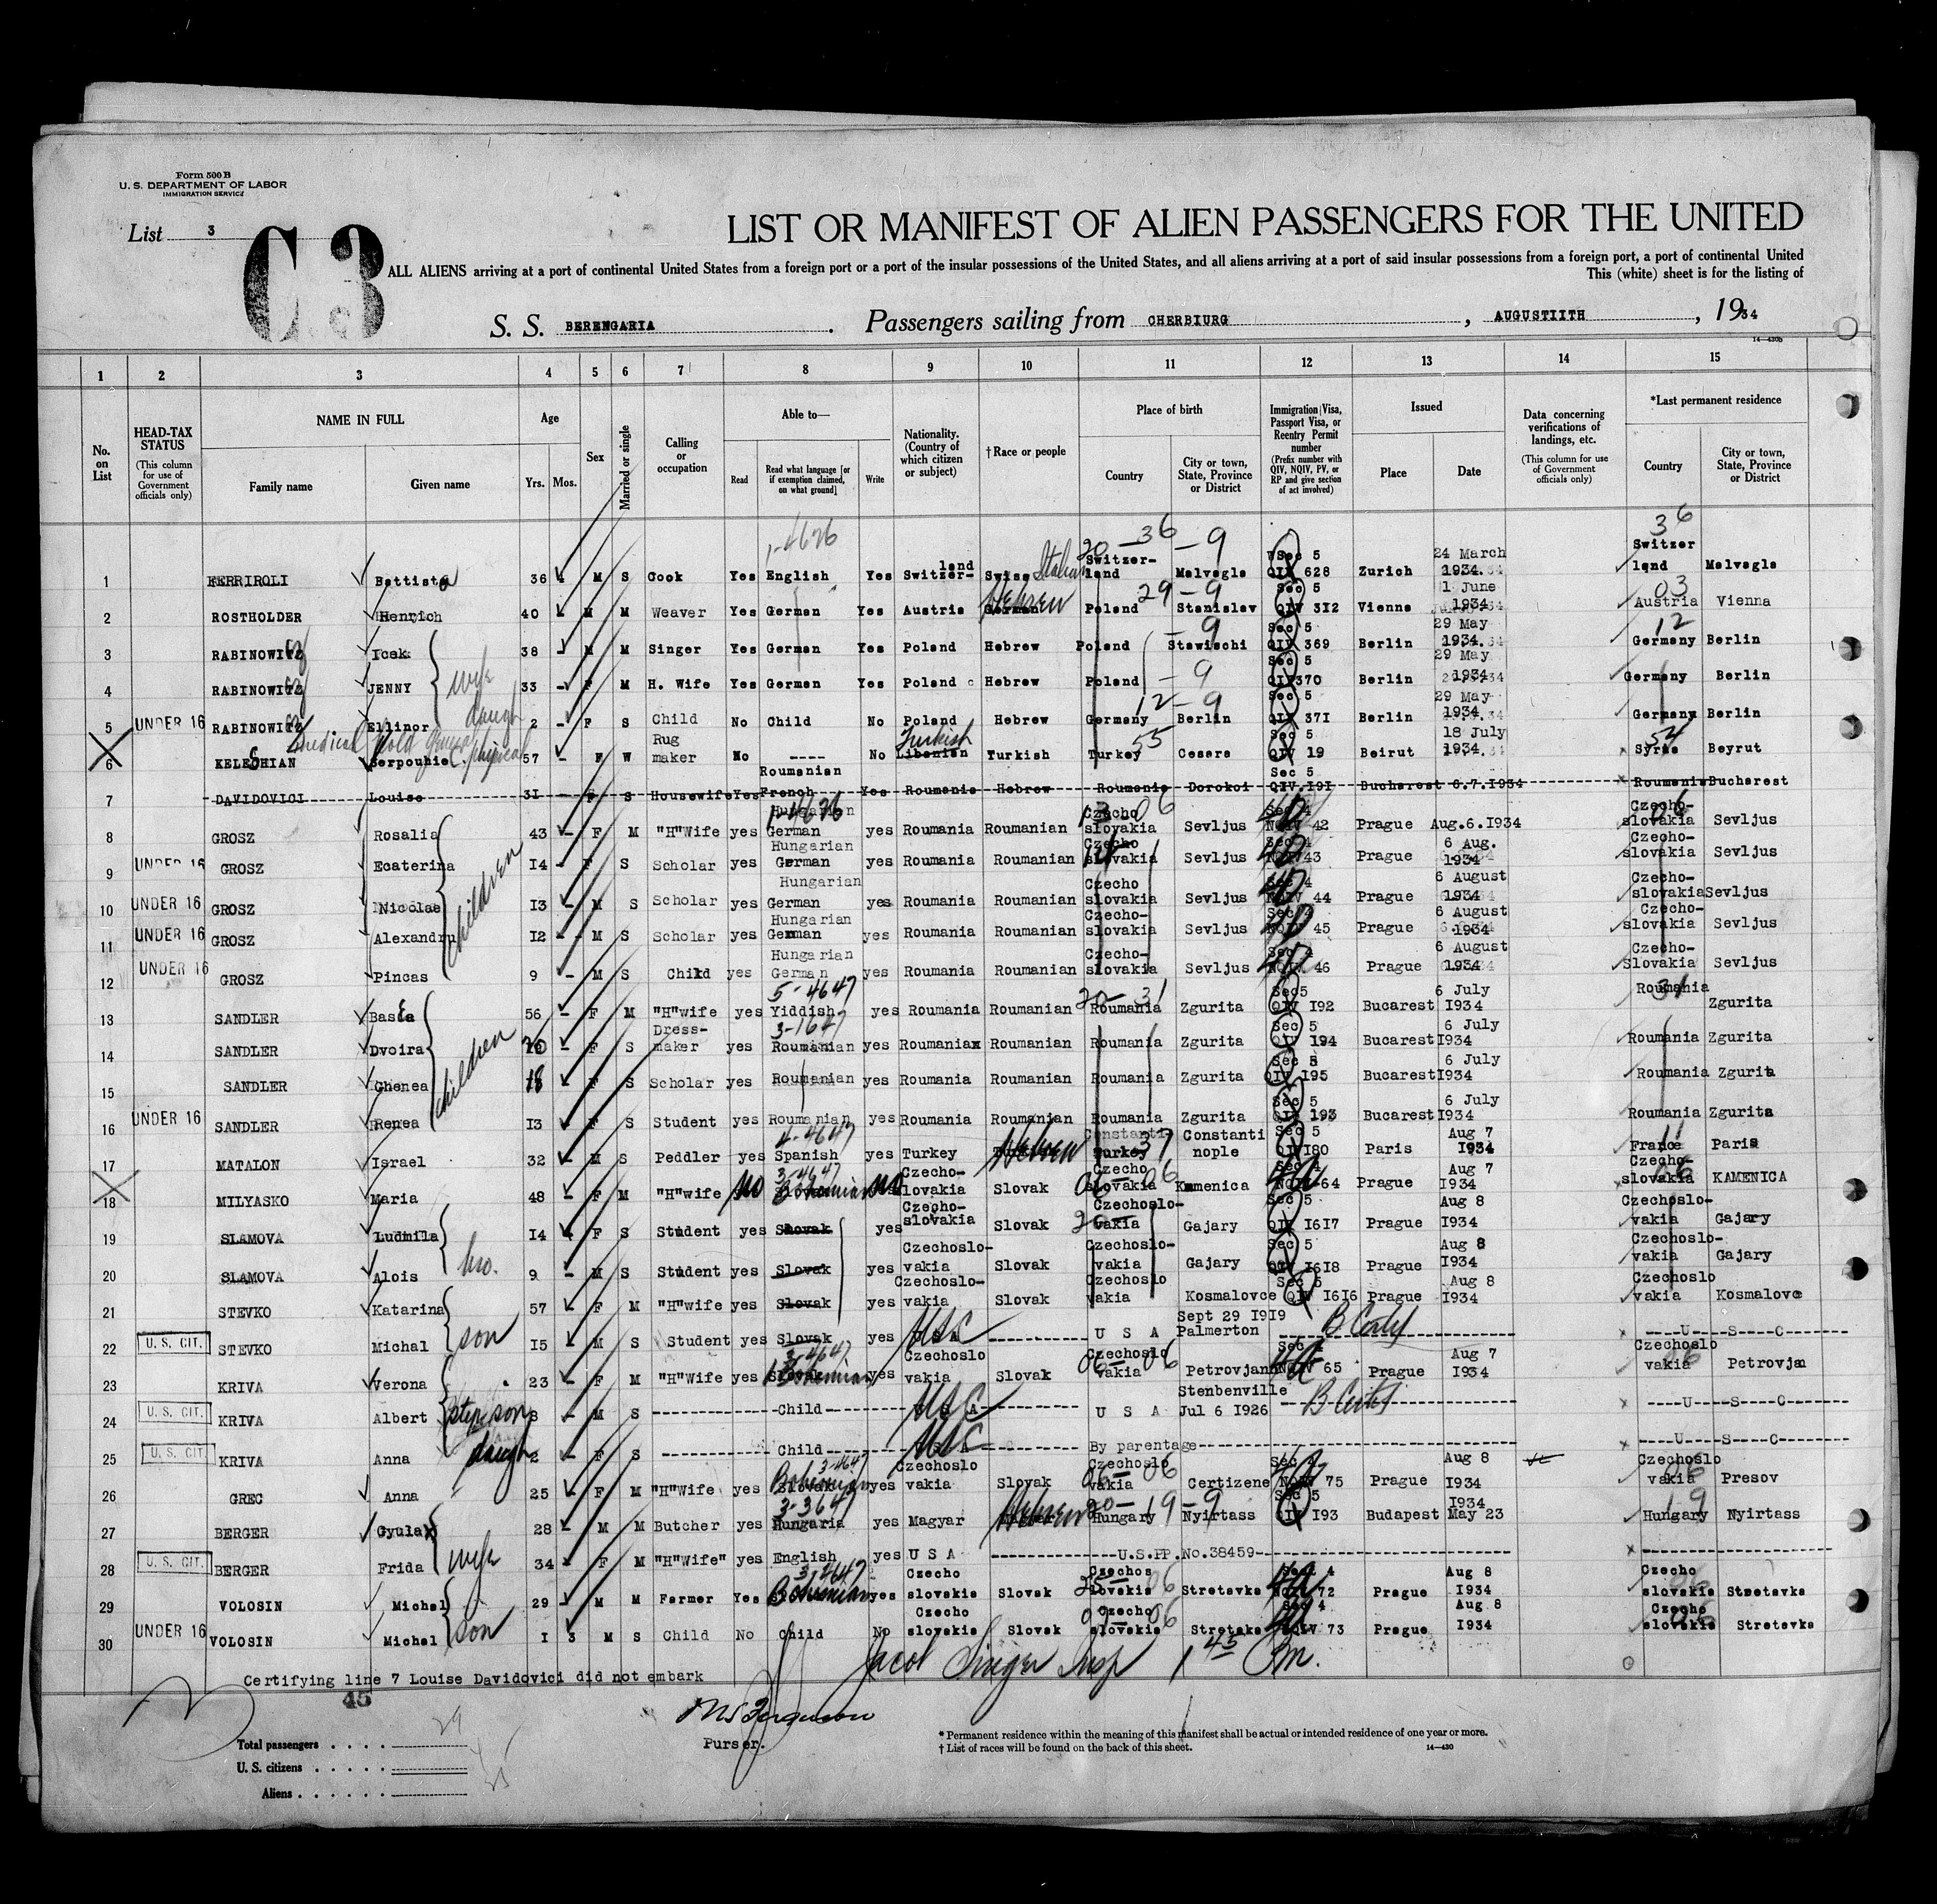 Form 500 B
U. S. DEPARTMENT OF LABOR
IMMIGRATION SERVICE
List 3
C 3
LIST OR MANIFEST OF ALIEN PASSENGERS FOR THE UNITED
ALL ALIENS arriving at a port of continental United States from a foreign port or a port of the insular possessions of the United States, and all aliens arriving at a port of said insular possessions from a foreign port, a port of continental United
This (white) sheet is for the listing of
S. S. BERENGARIA . Passengers sailing from CHERBIURG , AUGUSTIITH , 1934
14—430b
1 2 3 4 5 6 7 8 9 10 11 12 13 14 15
No. on List
HEAD-TAX STATUS (This column for use of Government officials only)
NAME IN FULL Family name Given name
Age Yrs. Mos.
Sex
Married or single
Calling or occupation
Able to— Read Read what language [or if exemption claimed, on what ground] Write
Nationality. (Country of which citizen or subject)
†Race or people
Place of birth Country City or town, State, Province or District
Immigration Visa, Passport Visa, or Reentry Permit number (Prefix number with QIV, NQIV, PV, or RP and give section of act involved)
Issued Place Date
Data concerning verifications of landings, etc. (This column for use of Government officials only)
*Last permanent residence Country City or town, State, Province or District
1 FERRIROLI Battista 36 M S Cook Yes English Yes Switzer-land Swiss Italian Switzer-land Malvagla Sec 5 QIV 628 Zurich 24 March 1934. Switzer land Malvagla
2 ROSTHOLDER Henrich 40 M M Weaver Yes German Yes Austria German Hebrew Poland Stanislav Sec 5 QIV 312 Vienna 1 June 1934 Austria Vienna
3 RABINOWITZ Icek 38 - M M Singer Yes German Yes Poland Hebrew Poland Stawischi Sec 5 QIV 369 Berlin 29 May 1934. Germany Berlin
4 RABINOWITZ JENNY wife 33 - F M H. Wife Yes German Yes Poland Hebrew Poland Sec 5 QIV370 Berlin 29 May 1934 Germany Berlin
5 UNDER 16 RABINOWITZ Ellinor daugh 2 - F S Child No Child No Poland Hebrew Germany Berlin Sec 5 QIV 371 Berlin 29 May 1934 Germany Berlin
6 KELECHIAN Serpouhie 57 - F W Rug maker No ---- No Libanian Turkish Turkish Turkey Cesara Sec 5 QIV 19 Beirut 18 July 1934. Syria Beyrut
7 DAVIDOVICI Louise 31 - F S Housewife Yes Roumanian French Yes Roumania Hebrew Roumania Dorokoi Sec 5 QIV.191 Bucharest 6.7.1934 Roumania Bucharest
8 GROSZ Rosalia 43 - F M "H"Wife yes Hungarian German yes Roumania Roumanian Czecho slovakia Sevljus Sec 4 NQIV 42 Prague Aug.6.1934 Czecho-slovakia Sevljus
9 UNDER 16 GROSZ Ecaterina 14 - F S Scholar yes Hungarian German yes Roumania Roumanian Czecho slovakia Sevljus Sec 4 NQIV43 Prague 6 Aug. 1934 Czecho-slovakia Sevljus
10 UNDER 16 GROSZ Nicolae children 13 - M S Scholar yes Hungarian German yes Roumania Roumanian Czecho slovakia Sevljus Sec 4 NQIV 44 Prague 6 August 1934 Czecho-slovakia Sevljus
11 UNDER 16 GROSZ Alexandru 12 - M S Scholar yes Hungarian German yes Roumania Roumanian Czecho-slovakia Sevljus Sec 4 NQIV 45 Prague 6 August 1934 Czecho-slovakia Sevljus
12 UNDER 16 GROSZ Pincas 9 - M S Child yes Hungarian German yes Roumania Roumanian Czecho-slovakia Sevljus Sec 4 NQIV 46 Prague 6 August 1934 Czecho-slovakia Sevljus
13 SANDLER Basea 56 - F M "H"wife yes Yiddish yes Roumania Roumanian Roumania Zgurita Sec5 QIV 192 Bucarest 6 July 1934 Roumania Zgurita
14 SANDLER Dvoira - F S Dress-maker yes Roumanian yes Roumania Roumanian Roumania Zgurita Sec 5 QIV 194 Bucarest 6 July 1934 Roumania Zgurita
15 SANDLER Ghenea children 18 F S Scholar yes Roumanian yes Roumania Roumanian Roumania Zgurita Sec 5 QIV 195 Bucarest 6 July 1934 Roumania Zgurita
16 UNDER 16 SANDLER Renea 13 - F S Student yes Roumanian yes Roumania Roumanian Roumania Zgurita Sec 5 QIV 193 Bucarest 6 July 1934 Roumania Zgurita
17 MATALON Israel 32 - M S Peddler yes Spanish yes Turkey Hebrew Turkey Constanti nople Sec 5 QIV180 Paris Aug 7 1934 France Paris
18 MILYASKO Maria 48 - F M "H"wife no Bohemian no Czecho-slovakia Slovak Czecho slovakia Kamenica Sec 4 NQIV 64 Prague Aug 7 1934 Czecho-slovakia KAMENICA
19 SLAMOVA Ludmila 14 F S Student yes Slovak yes Czecho-slovakia Slovak Czechoslo-vakia Gajary Sec 5 QIV 1617 Prague Aug 8 1934 Czechoslo-vakia Gajary
20 SLAMOVA Alois bro. 9 - M S Student yes Slovak yes Czechoslo-vakia Slovak Czechoslo-vakia Gajary Sec 5 QIV 1618 Prague Aug 8 1934 Czechoslo-vakia Gajary
21 STEVKO Katarina 57 F M "H"wife yes Slovak yes Czechoslo-vakia Slovak Czechoslo vakia Kosmalovce Sec 5 QIV 1616 Prague Aug 8 1934 Czechoslo vakia Kosmalovce
22 U. S. CIT. STEVKO Michal son 15 - M S Student yes Slovak yes U S A USC U S A Sept 29 1919 Palmerton B Certf ----U----S----C----
23 KRIVA Verona 23 - F M "H"Wife yes Bohemian yes Czechoslo vakia Slovak Czechoslo vakia Petrovjann Sec 4 NQIV 65 Prague Aug 7 1934 Czechoslo vakia Petrovjan
24 U. S. CIT. KRIVA Albert step son 8 - M S Child U S A USC U S A Stenbenville Jul 6 1926 B Certf ----U----S----C----
25 U. S. CIT. KRIVA Anna daugh 2 - F S Child U S A USC By parentage ----U----S----C----
26 GREC Anna 25 F M "H"Wife yes Bohemian yes Czechoslo vakia Slovak Czechoslo vakia Certizene Sec 4 NQIV 75 Prague Aug 8 1934 Czechoslo vakia Presov
27 BERGER Gyula 28 - M M Butcher yes Hungaria yes Magyar Hebrew Hungary Nyirtass Sec 5 QIV 193 Budapest 1934 May 23 Hungary Nyirtass
28 U. S. CIT. BERGER Frida wife 34 F M "H"Wife" yes English yes U S A U.S.PP.No.38459
29 VOLOSIN Michal 29 - M M Farmer Yes Bohemian yes Czecho slovakia Slovak Czechos lovakia Stretavka Sec 4 NQIV 72 Prague Aug 8 1934 Czecho slovakia Stretavka
30 UNDER 16 VOLOSIN Michal son 1 3 M S Child No Child No Czecho slovakia Slovak Czecho slovakia Stretaka Sec 4 NQIV 73 Prague Aug 8 1934 Czecho slovakia Stretavka
Jacob Singer Insp 1 45 Pm.
Certifying line 7 Louise Davidovici did not embark
45
Total passengers 29
U. S. citizens 4
Aliens 25
Purser.
* Permanent residence within the meaning of this manifest shall be actual or intended residence of one year or more.
† List of races will be found on the back of this sheet.
14—430